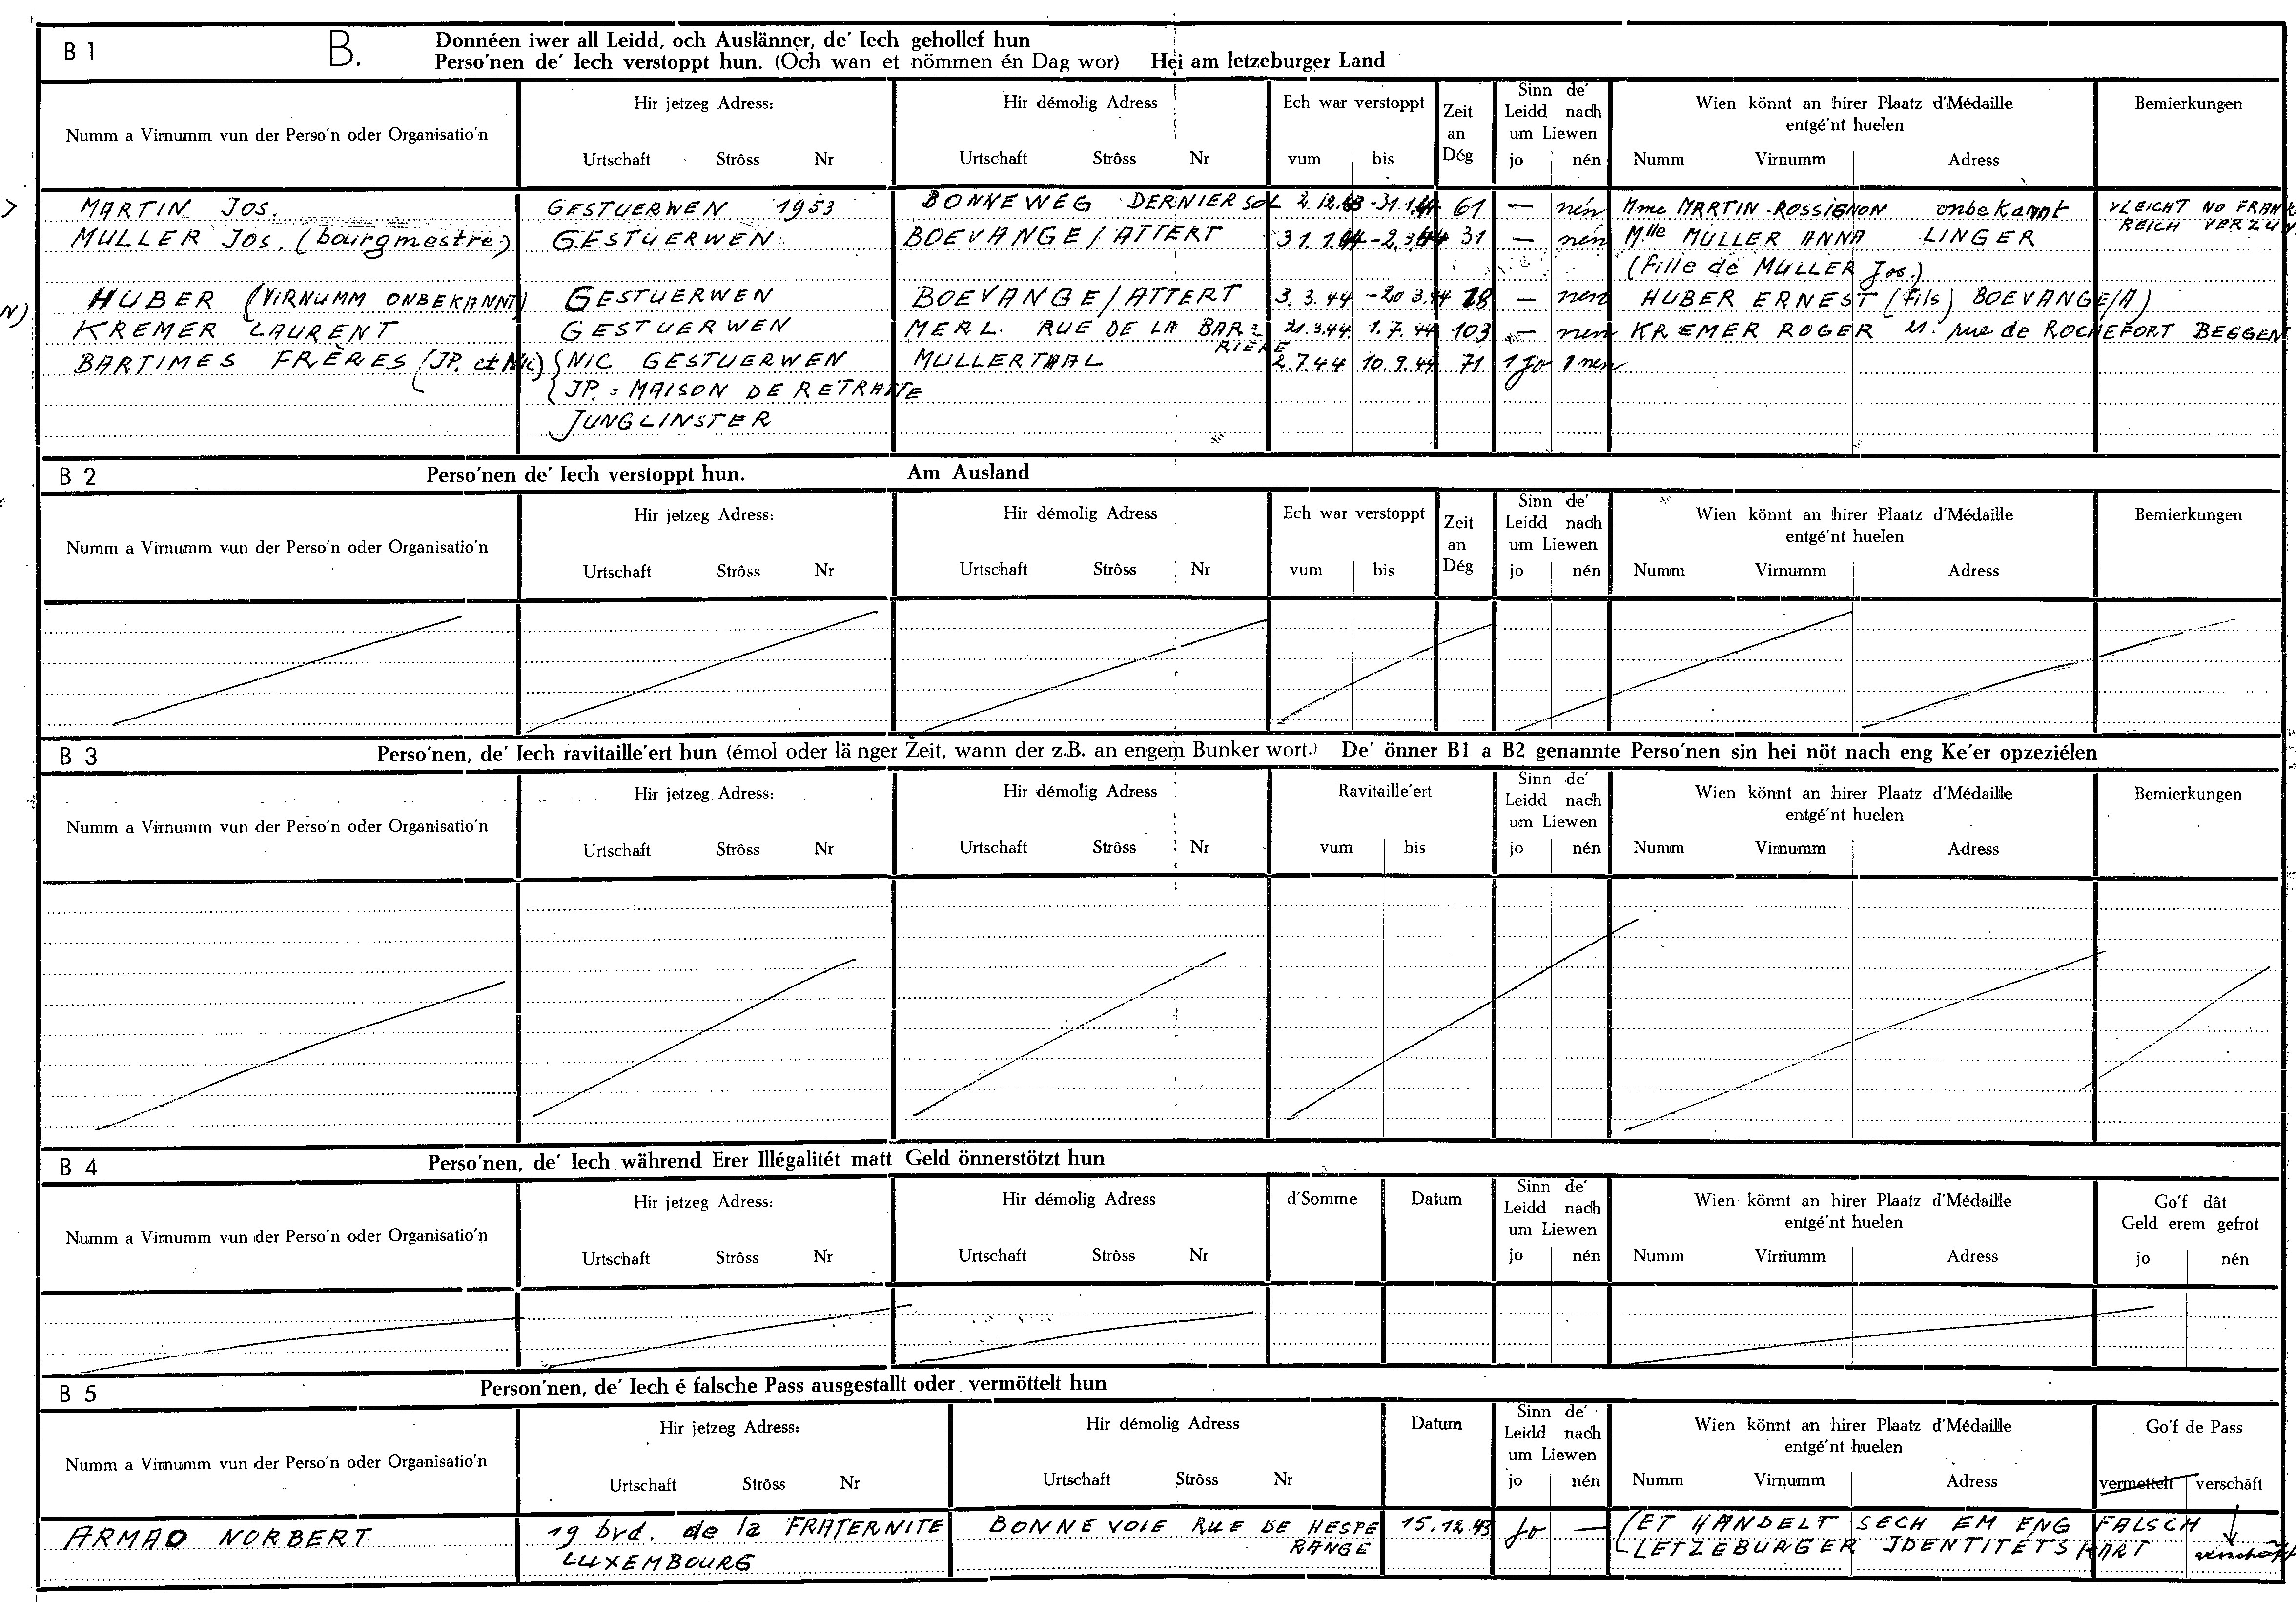 B 1 B. Donnéen iwer all Leidd, och Auslänner, de' Iech gehollef hun
Perso'nen de' Iech verstoppt hun. (Och wan et nömmen én Dag wor) Hei am letzeburger Land
Numm a Virnumm vun der Perso'n oder Organisatio'n
Hir jetzeg Adress:
Urtschaft Strôss Nr
Hir démolig Adress
Urtschaft Strôss Nr
Ech war verstoppt
vum bis
Zeit
an
Dég
Sinn de'
Leidd nach
um Liewen
jo nén
Wien könnt an hirer Plaatz d'Médaille
entgé'nt huelen
Numm Virnumm Adress
Bemierkungen
MARTIN JOS. GESTUERWEN 1953 BONNEWEG DERNIER SOL 2.12.43 -31.1.44 61 — nén Mme MARTIN-ROSSIGNON onbekannt VLEICHT NO FRANK
REICH VERZUN
MULLER JOS. (bourgmestre) GESTUERWEN BOEVANGE/ATTERT 31.1.44 -2.3.44 31 — nén Mlle MULLER ANNA LINGER
(fille de MULLER Jos.)
HUBER (VIRNUMM ONBEKANNT) GESTUERWEN BOEVANGE/ATTERT 3.3.44 -20 3.44 18 — nen HUBER ERNEST (fils) BOEVANGE/A)
KREMER LAURENT GESTUERWEN MERL. RUE DE LA BAR=
RIÈRE 21.3.44. 1.7.44 103 — nen KREMER ROGER 21. rue de ROCHEFORT BEGGEN
BARTIMES FRÈRES (JP. et Nic) NIC GESTUERWEN MULLERTHAL 2.7.44 10.9.44 71 1 jo 1 nen
JP. : MAISON DE RETRAITE
JUNGLINSTER
B 2 Perso'nen de' Iech verstoppt hun. Am Ausland
Numm a Virnumm vun der Perso'n oder Organisatio'n
Hir jetzeg Adress:
Urtschaft Strôss Nr
Hir démolig Adress
Urtschaft Strôss Nr
Ech war verstoppt
vum bis
Zeit
an
Dég
Sinn de'
Leidd nach
um Liewen
jo nén
Wien könnt an hirer Plaatz d'Médaille
entgé'nt huelen
Numm Virnumm Adress
Bemierkungen
B 3 Perso'nen, de' Iech ravitaille'ert hun (émol oder länger Zeit, wann der z.B. an engem Bunker wort.) De' önner B1 a B2 genannte Perso'nen sin hei nöt nach eng Ke'er opzeziélen
Numm a Virnumm vun der Perso'n oder Organisatio'n
Hir jetzeg Adress:
Urtschaft Strôss Nr
Hir démolig Adress
Urtschaft Strôss Nr
Ravitaille'ert
vum bis
Sinn de'
Leidd nach
um Liewen
jo nén
Wien könnt an hirer Plaatz d'Médaille
entgé'nt huelen
Numm Virnumm Adress
Bemierkungen
B 4 Perso'nen, de' Iech während Erer Illégalitét matt Geld önnerstötzt hun
Numm a Virnumm vun der Perso'n oder Organisatio'n
Hir jetzeg Adress:
Urtschaft Strôss Nr
Hir démolig Adress
Urtschaft Strôss Nr
d'Somme
Datum
Sinn de'
Leidd nach
um Liewen
jo nén
Wien könnt an hirer Plaatz d'Médaille
entgé'nt huelen
Numm Virnumm Adress
Go'f dât
Geld erem gefrot
jo nén
B 5 Person'nen, de' Iech é falsche Pass ausgestallt oder vermöttelt hun
Numm a Virnumm vun der Perso'n oder Organisatio'n
Hir jetzeg Adress:
Urtschaft Strôss Nr
Hir démolig Adress
Urtschaft Strôss Nr
Datum
Sinn de'
Leidd nach
um Liewen
jo nén
Wien könnt an hirer Plaatz d'Médaille
entgé'nt huelen
Numm Virnumm Adress
Go'f de Pass
vermettelt verschâft
ARMAO NORBERT 19 brd. de la FRATERNITE BONNEVOIE RUE DE HESPE 15.12.43 Jo — (ET HANDELT SECH EM ENG FALSCH
LUXEMBOURG RANGE LETZEBURGER IDENTITÉTSKART verschâft